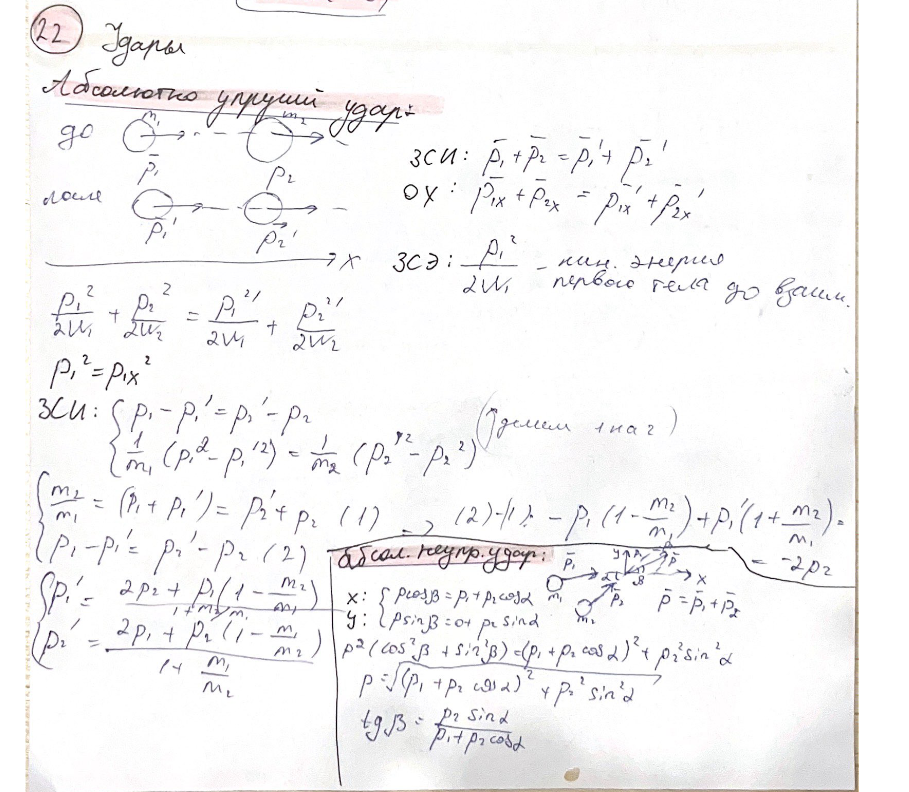 22 Удары
Абсолютно упругий удар:
до m₁ m₂
p̄₁ p₂
после
p̄₁' p̄₂'
x
ЗСИ: p̄₁ + p̄₂ = p̄₁' + p̄₂'
OX: p̄₁ₓ + p̄₂ₓ = p̄₁ₓ' + p̄₂ₓ'
ЗСЭ: p₁²/2m₁ - кин. энергия
первого тела до взаим.
p₁²/2m₁ + p₂²/2m₂ = p₁²'/2m₁ + p₂²'/2m₂
p₁² = p₁ₓ²
ЗСИ: { p₁ - p₁' = p₂' - p₂
{ 1/m₁ (p₁² - p₁'²) = 1/m₂ (p₂'² - p₂²) (↑делим 1 на 2)
{ m₂/m₁ = (p₁ + p₁') = p₂' + p₂ (1)
{ p₁ - p₁' = p₂' - p₂ (2)
=> (2)-(1): - p₁ (1 - m₂/m₁) + p₁' (1 + m₂/m₁) =
= -2p₂
{ p₁' = (2p₂ + p₁(1 - m₂/m₁))/(1 + m₂/m₁)
{ p₂' = (2p₁ + p₂(1 - m₁/m₂))/(1 + m₁/m₂)
абсол. неупр. удар:
p̄₁ y p̄ x
m₁ α β
m₂ p̄₂
p̄ = p̄₁ + p̄₂
x: { pcosβ = p₁ + p₂cosα
y: { psinβ = 0 + p₂ sinα
p² (cos²β + sin²β) = (p₁ + p₂ cosα)² + p₂² sin²α
p = √((p₁ + p₂ cosα)² + p₂² sin²α)
tgβ = p₂ sinα/(p₁ + p₂cosα)